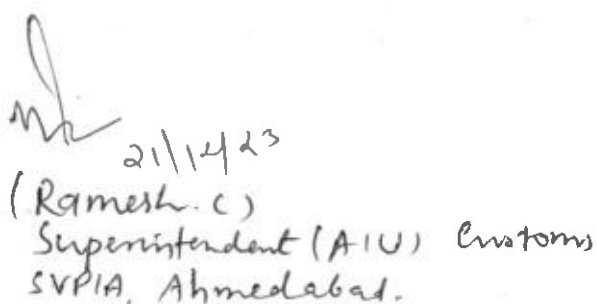 21/12/23
(Ramesh. C)
Superintendent (AIU) Customs
SVPIA, Ahmedabad.